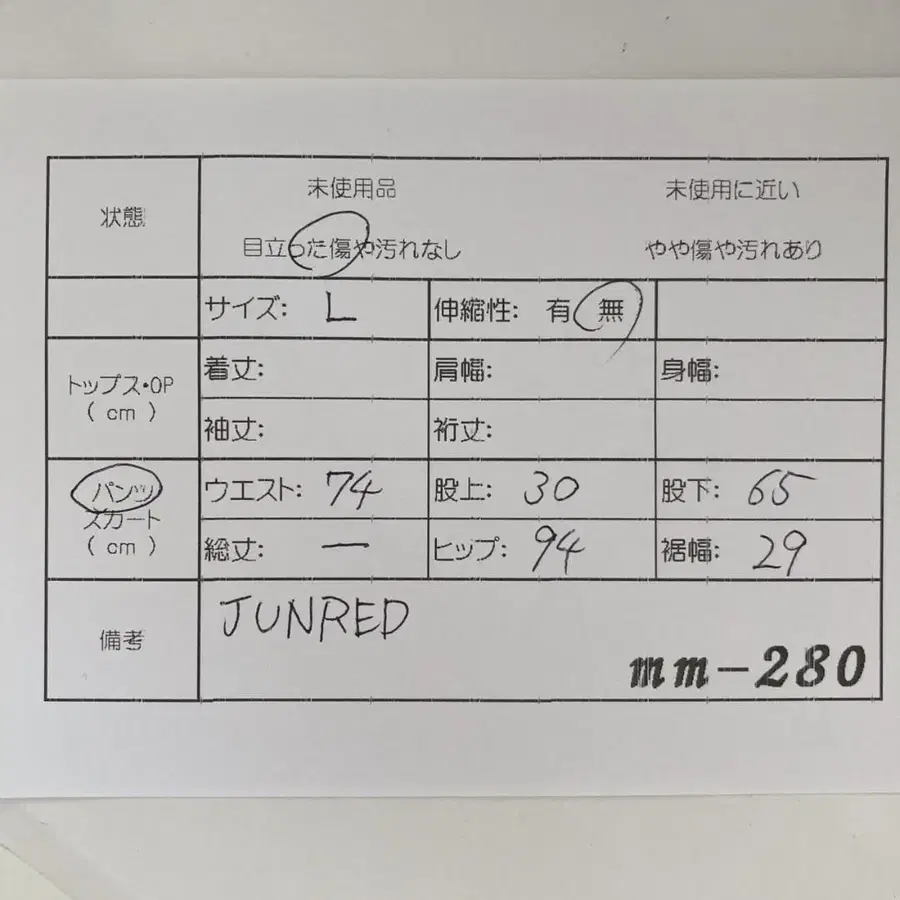 状態
未使用品 未使用に近い
目立った傷や汚れなし やや傷や汚れあり
サイズ: L 伸縮性: 有 無
トップス・OP
( cm )
着丈: 肩幅: 身幅:
袖丈: 裄丈:
パンツ
スカート
( cm )
ウエスト: 74 股上: 30 股下: 65
総丈: ー ヒップ: 94 裾幅: 29
備考
JUNRED
mm-280